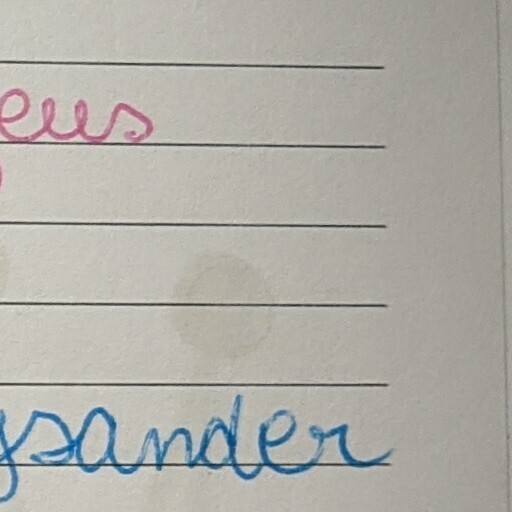 eus
ysander